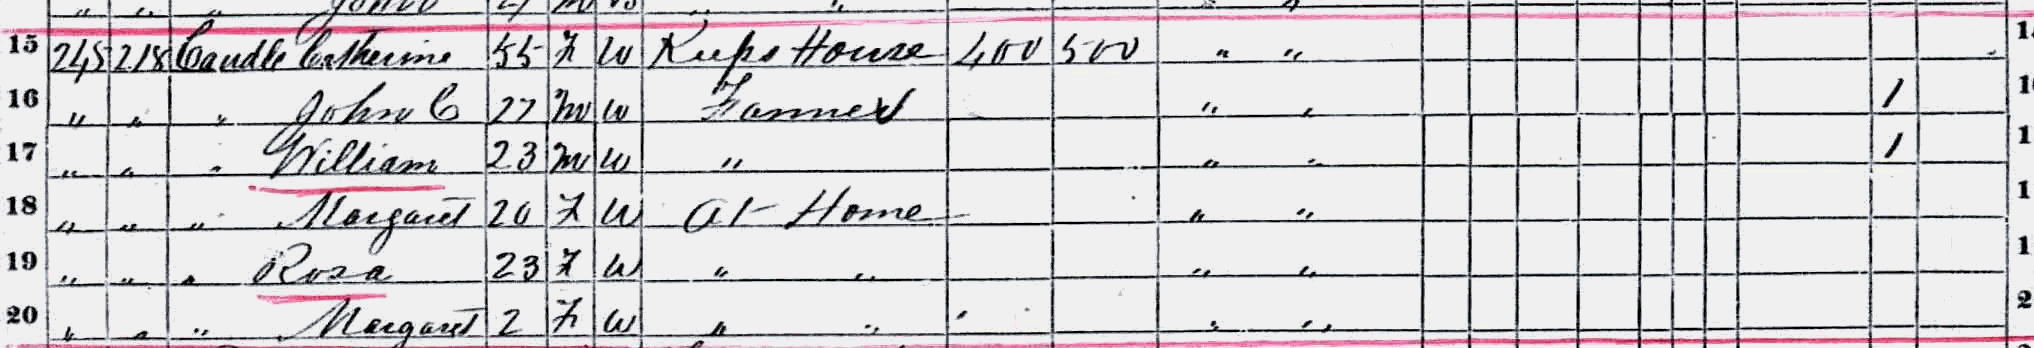 15 245 218 Caudle Catherine 55 F W Keeps House 400 500 " " 
16 " " " John C 27 M W Farmer " " / 
17 " " " William 23 M W " " " / 
18 " " " Margaret 20 F W At Home " " 
19 " " " Rosa 23 F W " " " " 
20 " " " Margaret 2 F W " " " "